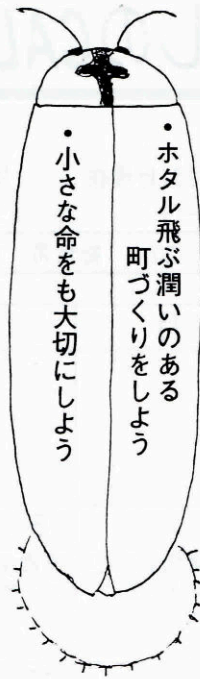 ・ホタル飛ぶ潤いのある
町づくりをしよう
・小さな命をも大切にしよう